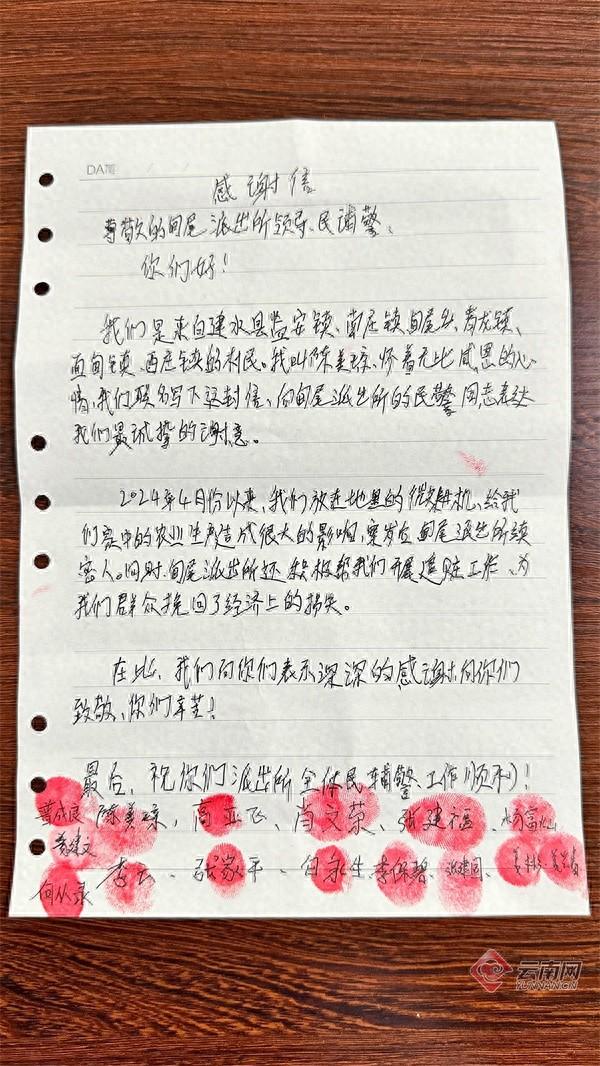 感谢信
尊敬的甸尾派出所领导、民辅警、
你们好!
我们是来自建水县临安镇、南庄镇、甸尾乡、青龙镇、
面甸镇、西庄镇的村民。我叫陈美琼,怀着无比感恩的心
情,我们联名写下这封信,向甸尾派出所的民警同志表达
我们最诚挚的谢意。
2024年4月份以来,我们放在地里的微耕机,给我
们家中的农业生产造成很大的影响,案发后甸尾派出所
人。同时,甸尾派出所还积极帮我们开展追赃工作、为
我们群众挽回了经济上的损失。
在此、我们向你们表示深深的感谢!向你们
致敬、你们辛苦!
最后,祝你们派出所全体民辅警、工作顺利!
陈美琼,高亚飞、肖文荣、张建福、
李云、张家平、白永生、李保碧、
云南网
YUNNAN.CN